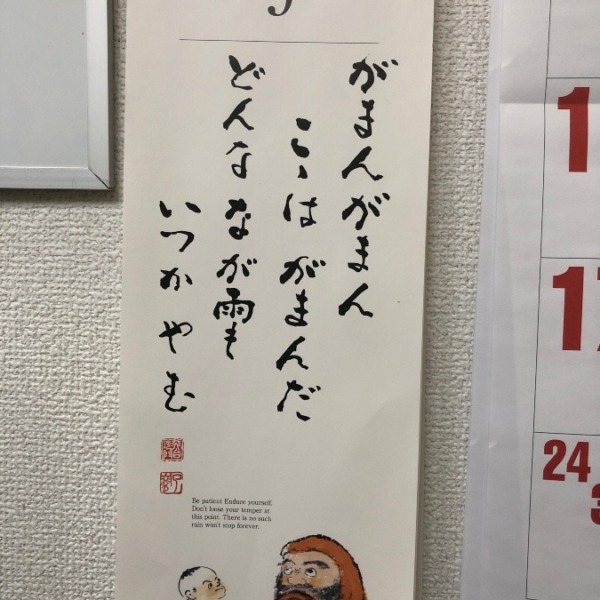 がまんがまん
こゝはがまんだ
どんななが雨も
いつかやむ
Be patient Endure yourself.
Don't loose your temper at
this point. There is no such
rain wan't stop forever.
24